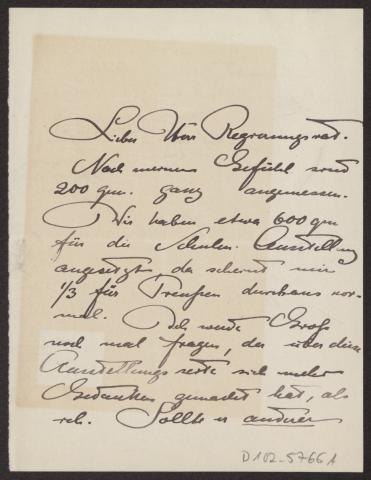 Lieber Herr Regierungsrat.
Nach meinem Gefühl sind
200 qm. ganz angemessen.
Wir haben etwa 600 qm
für die Schulen-Ausstellung
angesetzt, da scheint mir
1/3 für Preußen durchaus nor-
mal. Ich werde Groß
noch mal fragen, der über diese
Ausstellungs seite sich mehr
Gedanken gemacht hat, als
ich. Sollte er anderer
D 102-5766 1